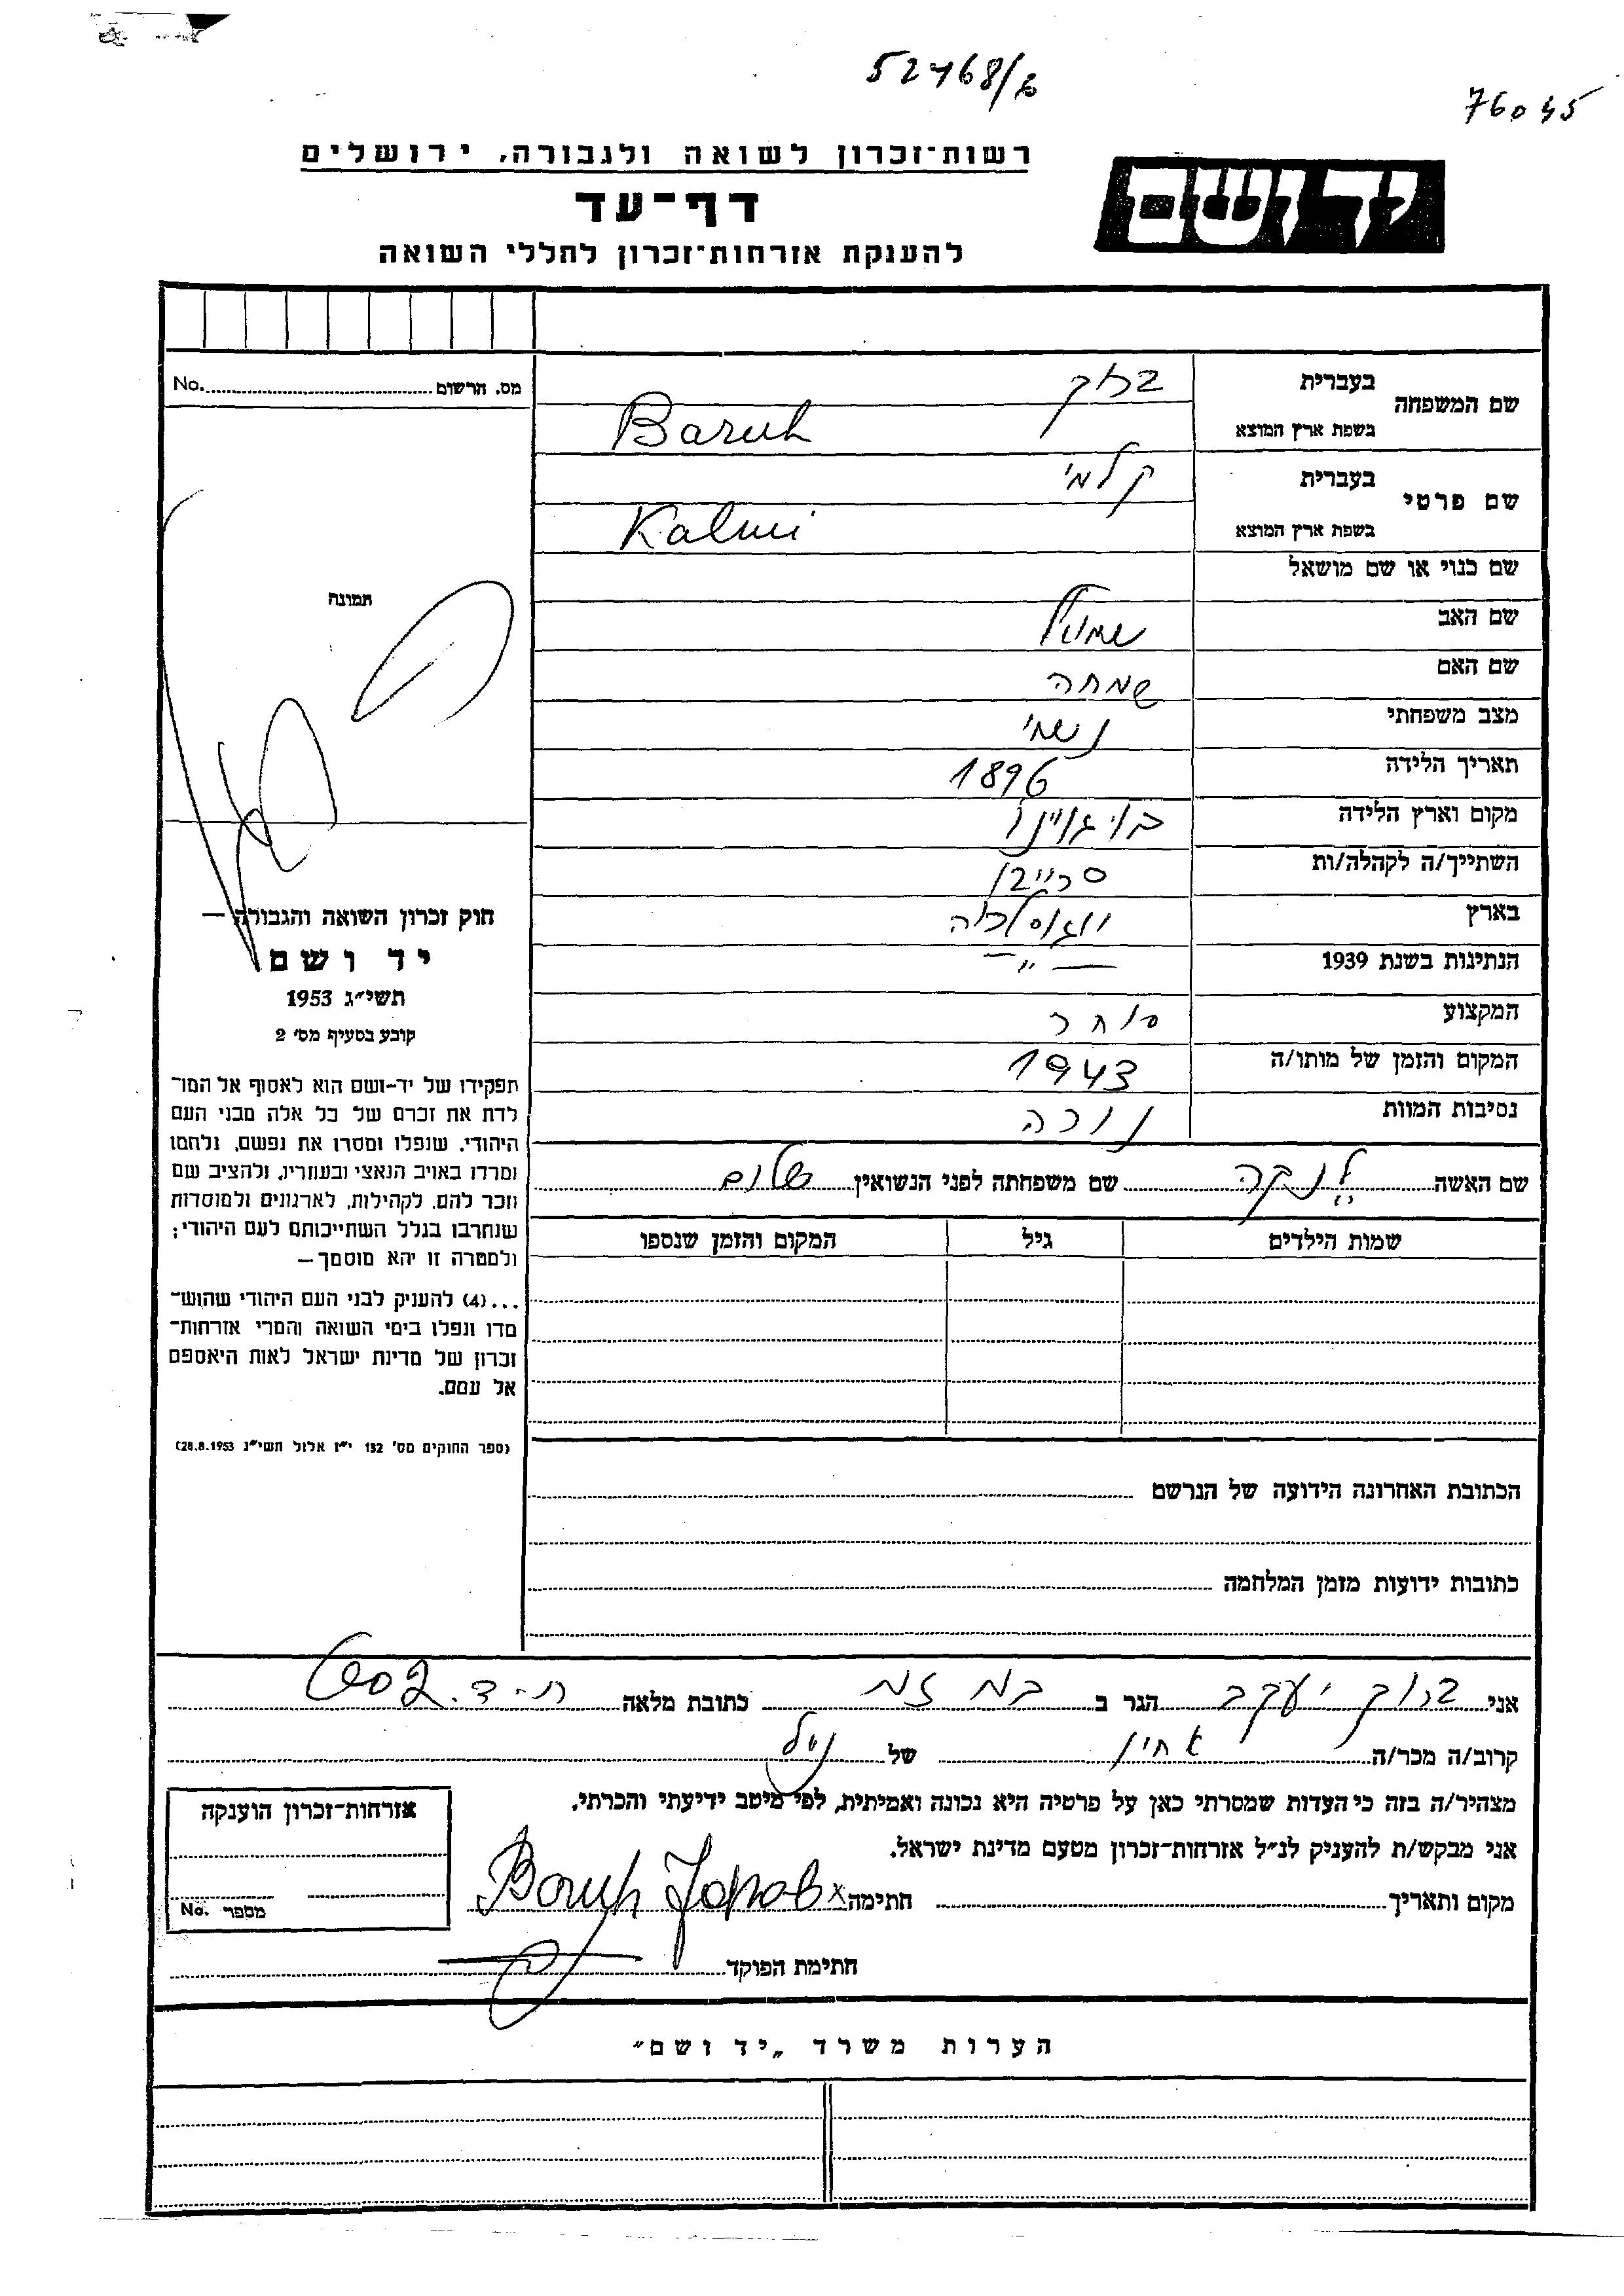 52468/6
76045
רשות־זכרון לשואה ולגבורה, ירושלים
יד ושם
דף־עד
להענקת אזרחות־זכרון לחללי השואה
שם המשפחה
בעברית ברוך
בשפת ארץ המוצא Baruh
שם פרטי
בעברית קלמי
בשפת ארץ המוצא Kalmi
שם כנוי או שם מושאל
שם האב שמואל
שם האם שמחה
מצב משפחתי נשוי
תאריך הלידה 1896
מקום וארץ הלידה
השתייך/ה לקהלה/ות
בארץ יוגוסלביה
הנתינות בשנת 1939 — " —
המקצוע סוחר
המקום והזמן של מותו/ה 1943
נסיבות המוות נורה
שם האשה ילנקה שם משפחתה לפני הנשואין שלום
שמות הילדים גיל המקום והזמן שנספו
הכתובת האחרונה הידועה של הנרשם
כתובות ידועות מזמן המלחמה
מס. הרשום No.
תמונה
חוק זכרון השואה והגבורה —
יד ושם
תשי״ג 1953
קובע בסעיף מס׳ 2
תפקידו של יד-ושם הוא לאסוף אל המו־
לדת את זכרם של כל אלה מבני העם
היהודי, שנפלו ומסרו את נפשם, נלחמו
ומרדו באויב הנאצי ובעוזריו, ולהציב שם
וזכר להם, לקהילות, לארגונים ולמוסדות
שנחרבו בגלל השתייכותם לעם היהודי;
ולמטרה זו יהא מוסמך —
...(4) להעניק לבני העם היהודי שהוש־
מדו ונפלו בימי השואה והמרי אזרחות־
זכרון של מדינת ישראל לאות היאספם
אל עמם.
(ספר החוקים מס׳ 132 י״ז אלול תשי״ג 28.8.1953)
אני ברוך יעקב הגר ב כתובת מלאה
קרוב/ה מכר/ה אחיין של
מצהיר/ה בזה כי העדות שמסרתי כאן על פרטיה היא נכונה ואמיתית, לפי מיטב ידיעתי והכרתי.
אני מבקש/ת להעניק לנ״ל אזרחות־זכרון מטעם מדינת ישראל.
מקום ותאריך חתימה x Baruh Jakov
חתימת הפוקד
אזרחות־זכרון הוענקה
מספר No.
הערות משרד „יד ושם״